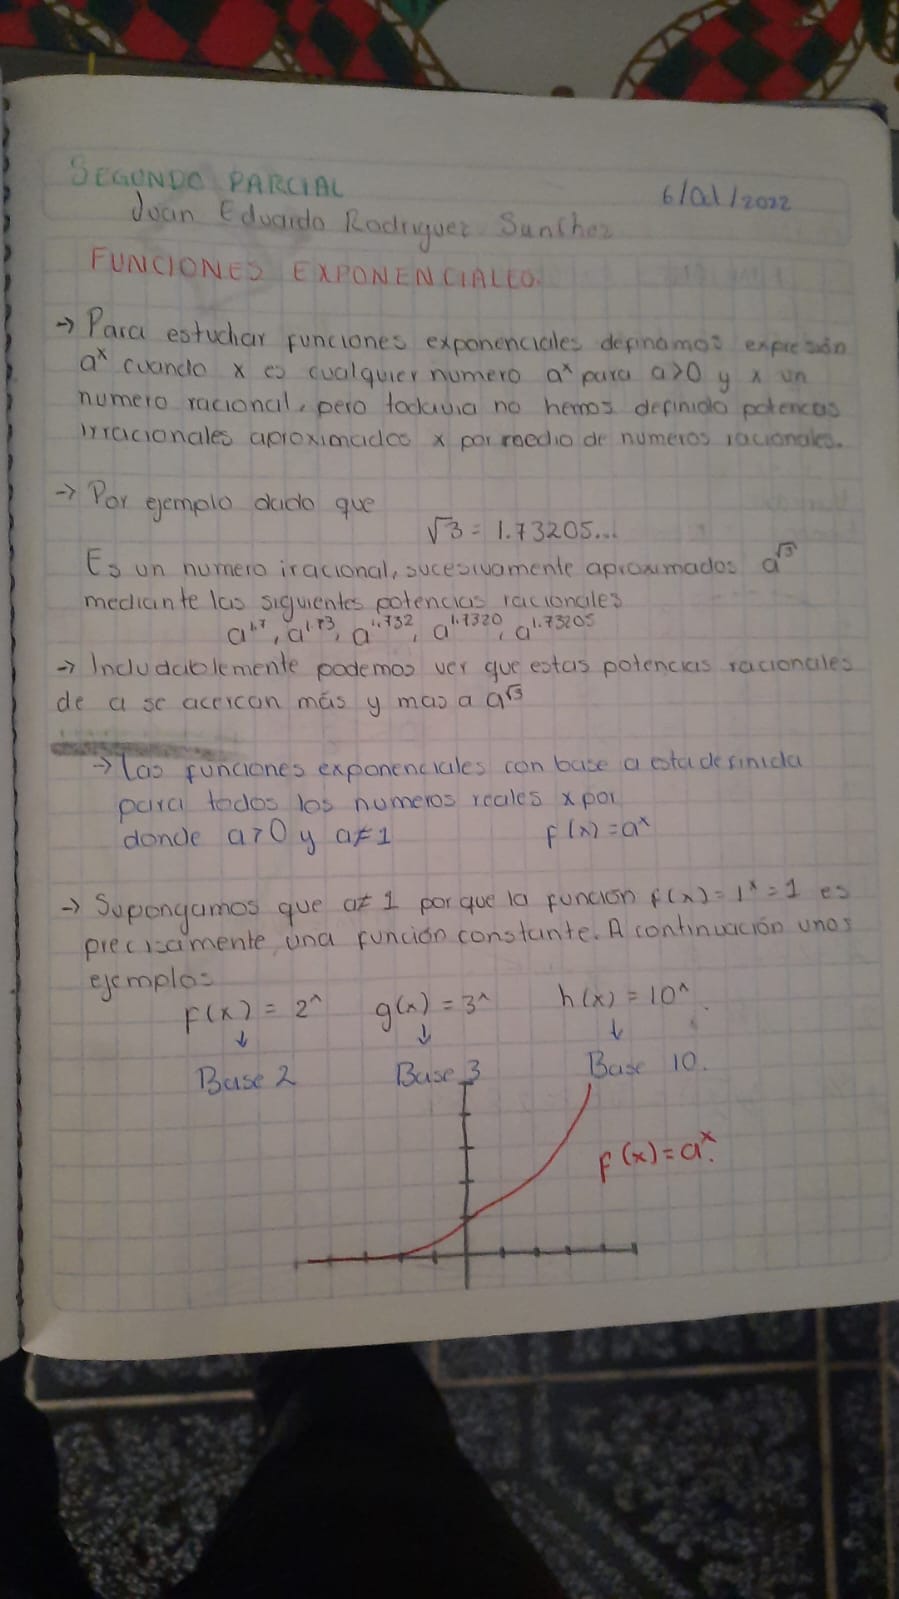 SEGUNDO PARCIAL
6/Oct/2022
Juan Eduardo Rodriguez Sanchez
FUNCIONES EXPONENCIALES.
→ Para estudiar funciones exponenciales definamos expresión
aˣ cuando x es cualquier numero aˣ para a>0 y x un
numero racional, pero todavia no hemos definido potencas
irracionales aproximados x por medio de numeros racionales.
→ Por ejemplo dado que
√3 = 1.73205...
Es un numero iracional, sucesivamente aproximados a^√3
mediante las siguientes potencias racionales
a^1.7, a^1.73, a^1.732, a^1.7320, a^1.73205
→ Indudablemente podemos ver que estas potencias racionales
de a se acercan más y mas a a^√3
→ Las funciones exponenciales con base a esta definida
para todos los numeros reales x por
donde a>0 y a≠1 f(x)=aˣ
→ Supongamos que a≠1 porque la función f(x)=1ˣ=1 es
precisamente una función constante. A continuación unos
ejemplos
f(x) = 2^ g(x) = 3^ h(x) = 10^
↓ ↓ ↓
Base 2 Base 3 Base 10.
f(x)=aˣ.